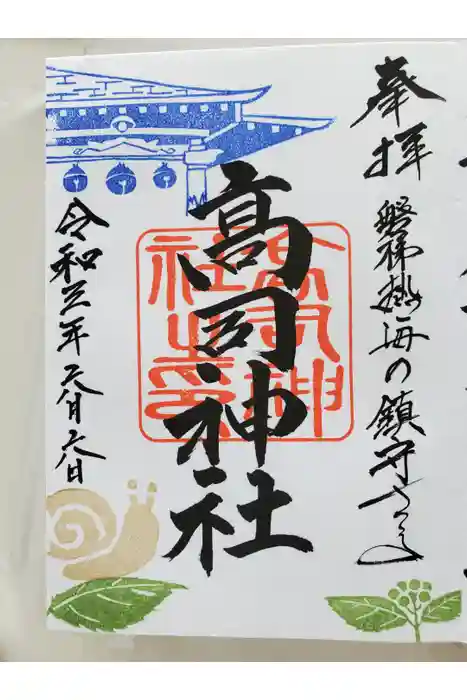 奉拝
磐梯熱海の鎮守さま
高司神社
高司神
社之印
令和三年六月六日